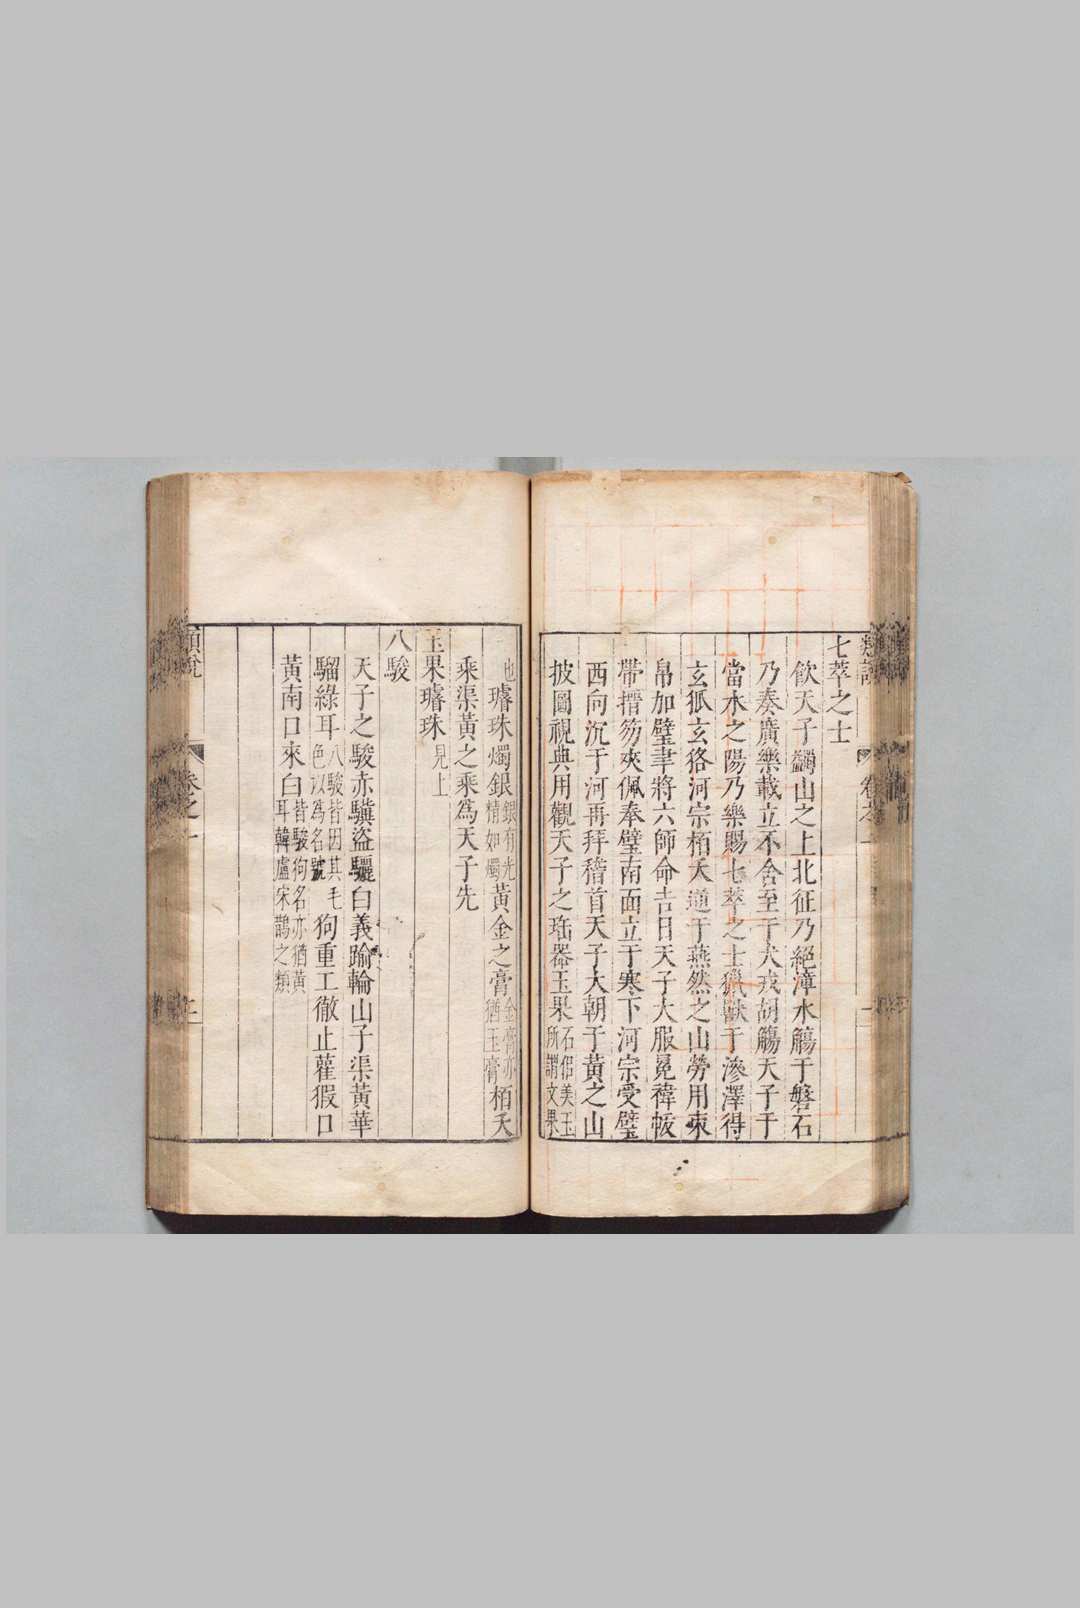 類說 卷之一
七萃之士
飲天子蠲山之上北征乃絕漳水觴于磐石
乃奏廣樂載立不舍至于犬戎胡觴天子于
當水之陽乃樂賜七萃之士獵獸于滲澤得
玄狐玄狢河宗栢夭逆于燕然之山勞用束
帛加璧聿將六師命吉日天子大服冕褘帗
帶搢笏夾佩奉璧南面立于寒下河宗受璧
西向沉于河再拜稽首天子大朝于黃之山
披圖視典用觀天子之珤器玉果石似美玉所謂文果
也璿珠燭銀銀有光精如燭黃金之膏金膏亦猶玉膏栢夭
乘渠黃之乘為天子先
玉果璿珠見上
八駿
天子之駿赤驥盜驪白義踰輪山子渠黃華
騮綠耳八駿皆因其毛色以為名號狗重工徹止雚猳口
黃南口來白皆駿狗名亦猶黃耳韓盧宋鵲之類
類說 卷之一